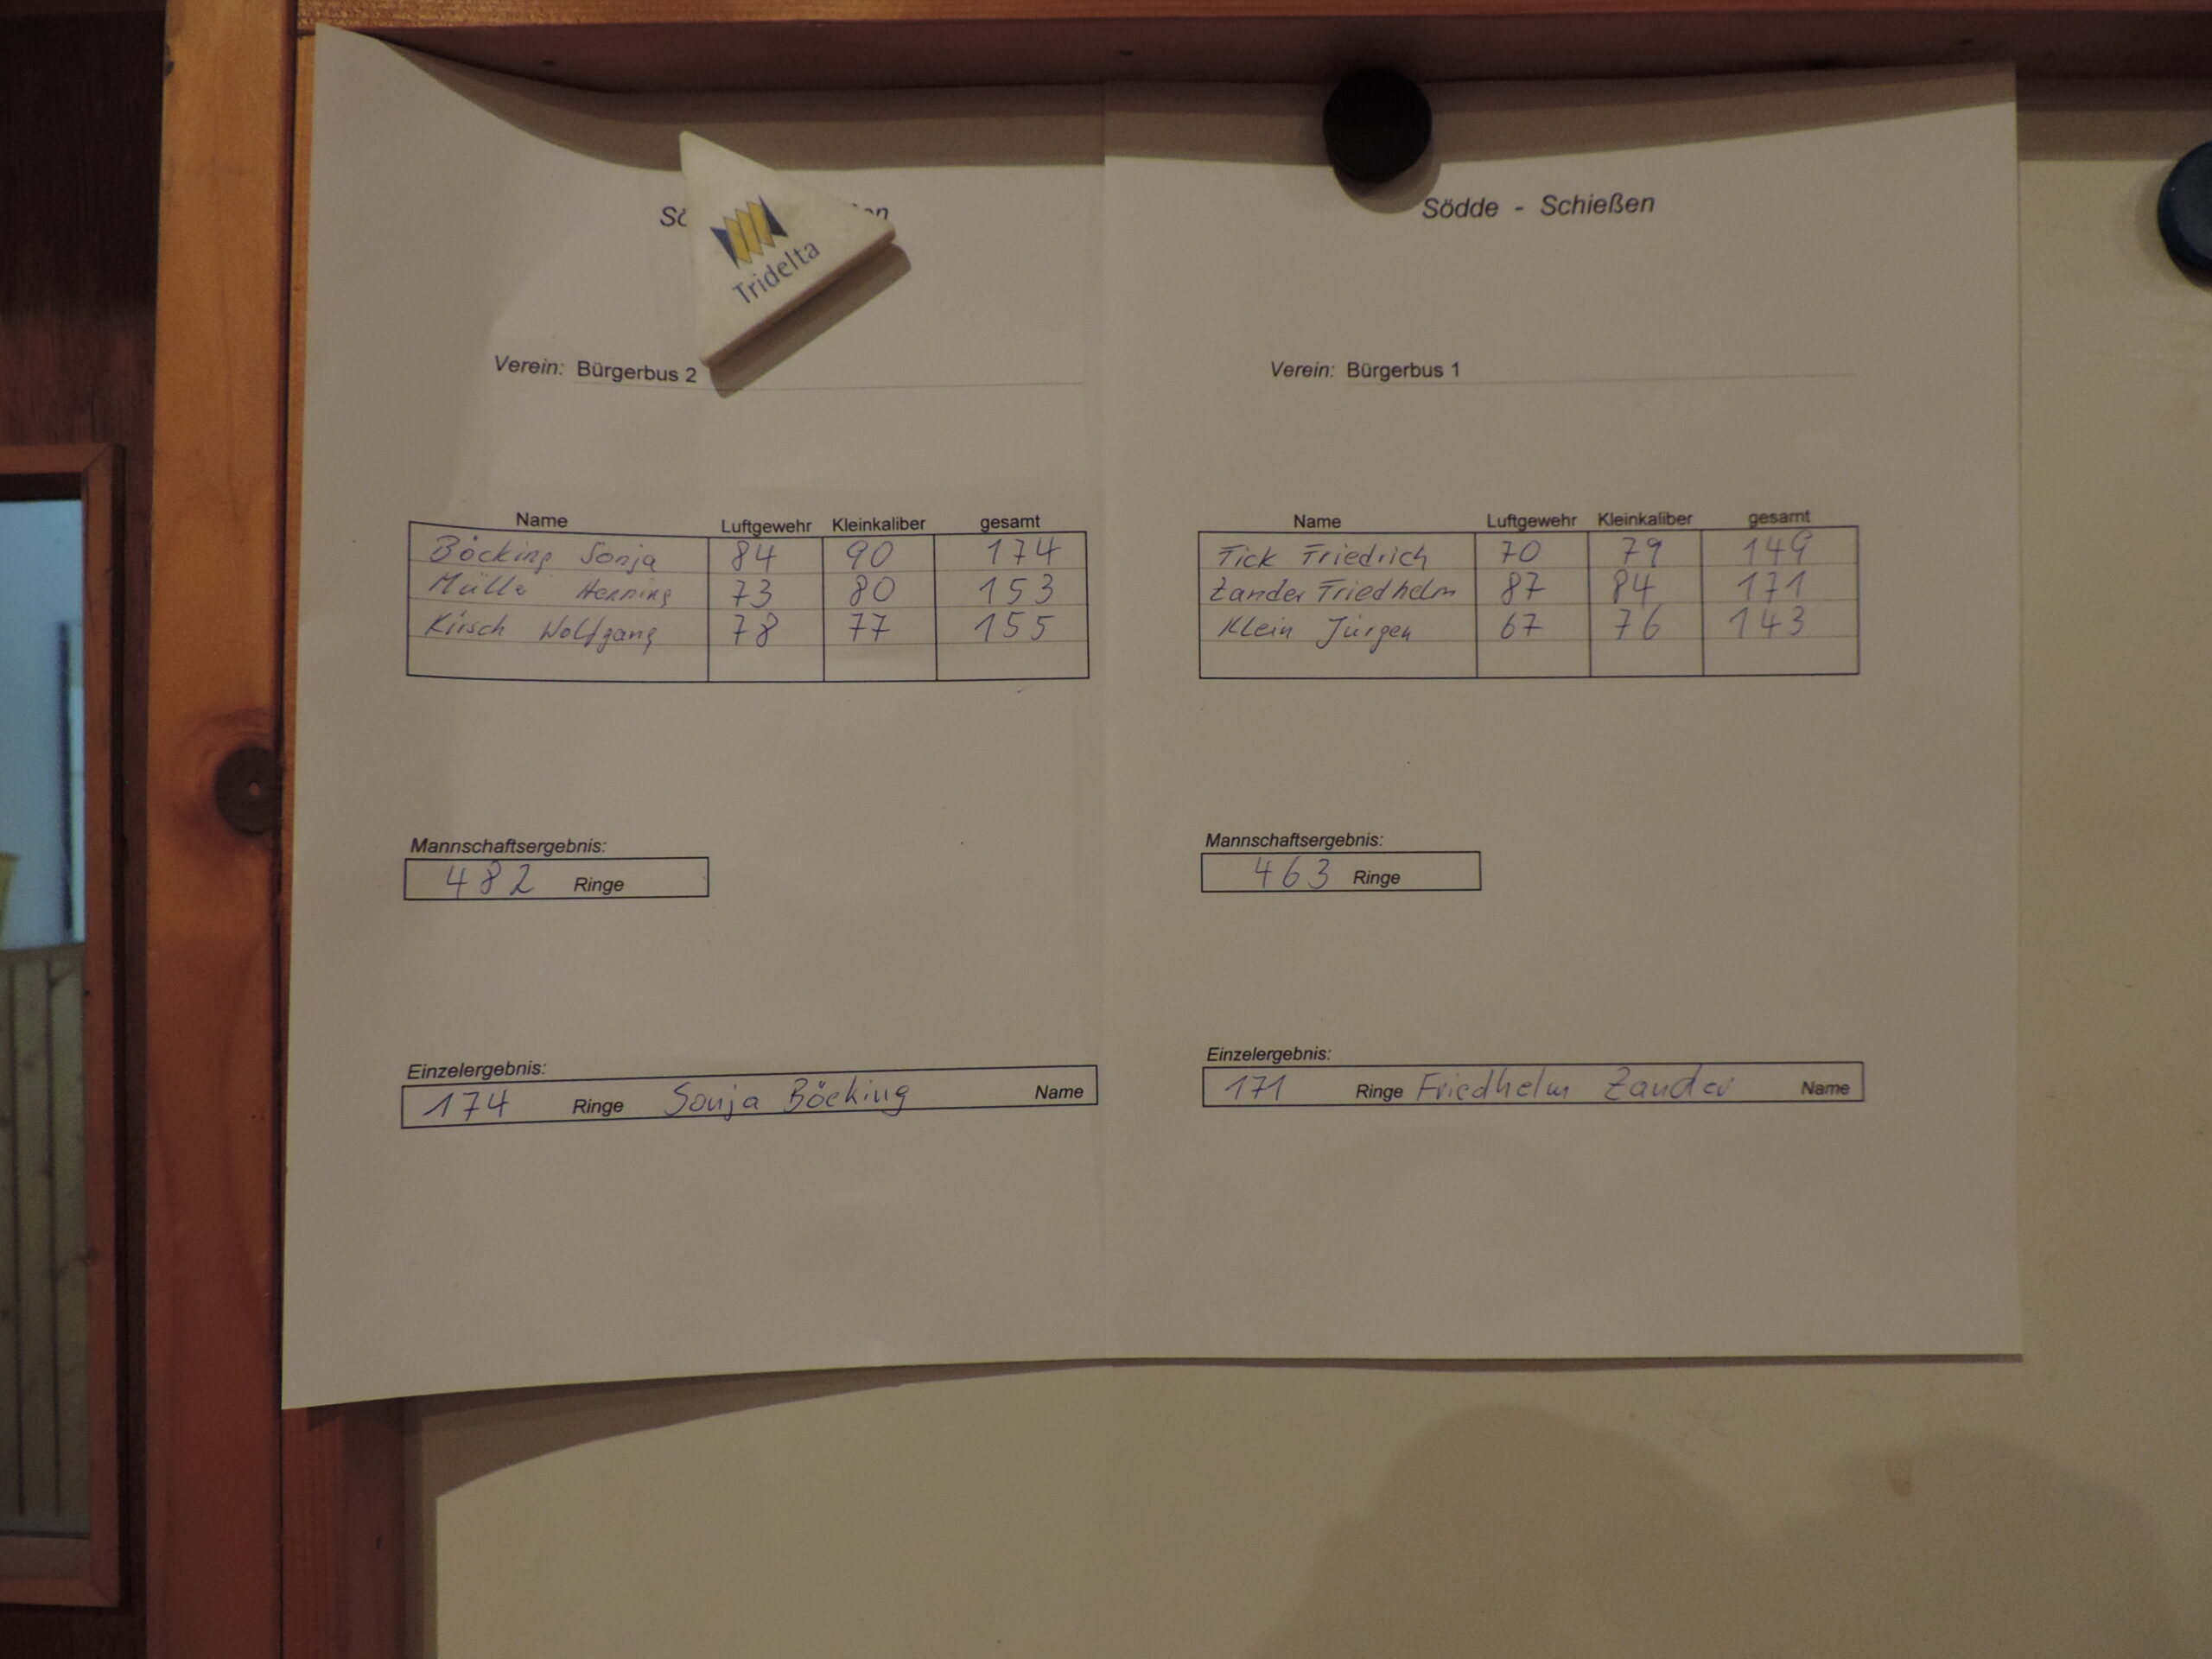 Tridelta
Verein: Bürgerbus 2
Name Luftgewehr Kleinkaliber gesamt
Böcking Sonja 84 90 174
Müller Henning 73 80 153
Kirsch Wolfgang 78 77 155
Mannschaftsergebnis:
482 Ringe
Einzelergebnis:
174 Ringe Sonja Böcking Name
Södde - Schießen
Verein: Bürgerbus 1
Name Luftgewehr Kleinkaliber gesamt
Tick Friedrich 70 79 149
Zander Friedhelm 87 84 171
Klein Jürgen 67 76 143
Mannschaftsergebnis:
463 Ringe
Einzelergebnis:
171 Ringe Friedhelm Zander Name